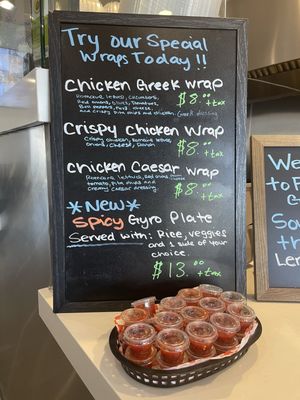 Try our Special
Wraps Today!!
Chicken Greek Wrap
Romaine lettuce, cucumbers,
Red onions, olives, tomatoes,
Bell peppers, Feta cheese,
and crispy pita chips and chicken Greek dressing
$8.00 +tax
Crispy Chicken Wrap
Crispy chicken, Romaine lettuce
onion, cheese, Ranch
$8.00 +tax
Chicken Caesar Wrap
Romaine lettuce, Red onions,
tomato, pita chips and
creamy Caesar dressing
$8.00 +tax
*NEW*
Spicy Gyro Plate
Served with: Rice, veggies
and 1 side of your
choice.
$13.00 +tax
We
to